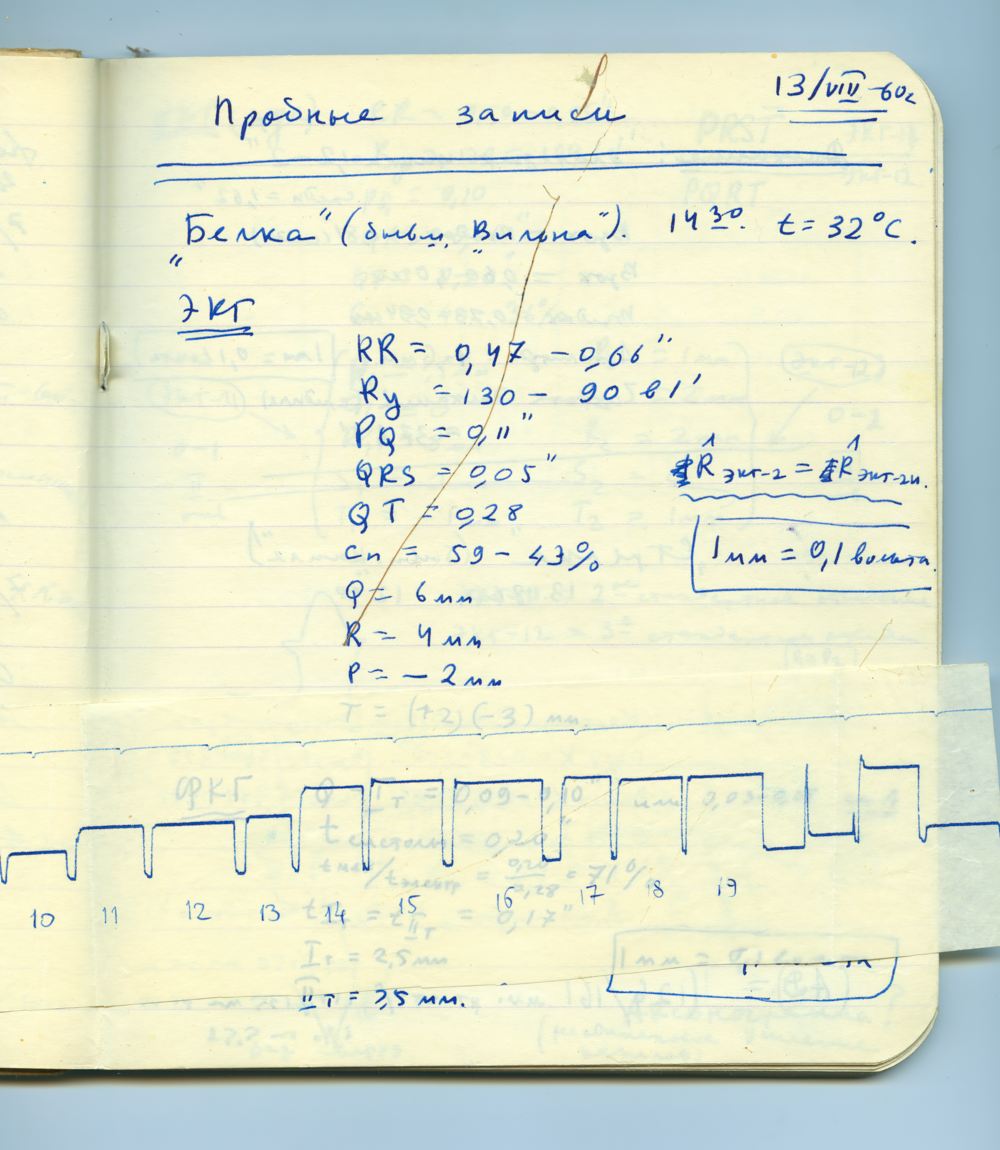 13/VIII-60г
Пробные записи
"Белка" (бывш. "Вильна"). 14 30. t = 32°C.
ЭКГ
RR = 0,47 - 0,66"
Ry = 130 - 90 в 1'
PQ = 0,11"
QRS = 0,05"
R ЭКГ-2 = R ЭКГ-2н.
QT = 0,28
сп = 59 - 43%
1 мм = 0,1 вольта.
Q = 6 мм
R = 4 мм
P = - 2 мм
T = (+2) (-3) мм.
ФКГ
Q - I т = 0,09 - 0,10"
t систолы = 0,20"
t мех/t электр = 0,20/0,28 = 71%
10 11 12 13 14 15 16 17 18 19
= 0,17"
I т = 2,5 мм
1 мм = 0,1
II т = 3,5 мм.